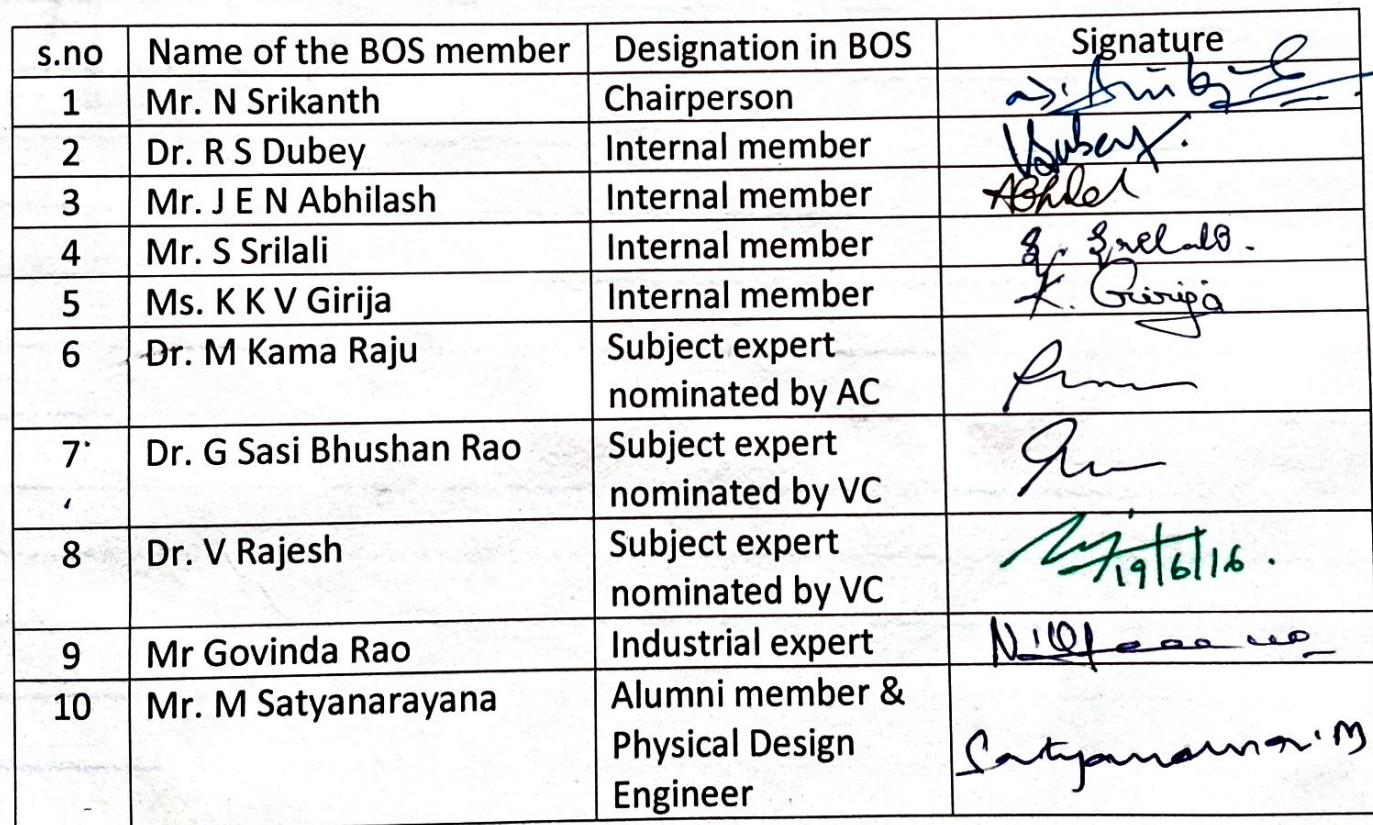 s.no Name of the BOS member Designation in BOS Signature
1 Mr. N Srikanth Chairperson
2 Dr. R S Dubey Internal member
3 Mr. J E N Abhilash Internal member
4 Mr. S Srilali Internal member
5 Ms. K K V Girija Internal member K. Girija
6 Dr. M Kama Raju Subject expert
nominated by AC
7 Dr. G Sasi Bhushan Rao Subject expert
nominated by VC
8 Dr. V Rajesh Subject expert
nominated by VC 19/6/16.
9 Mr Govinda Rao Industrial expert
10 Mr. M Satyanarayana Alumni member &
Physical Design
Engineer